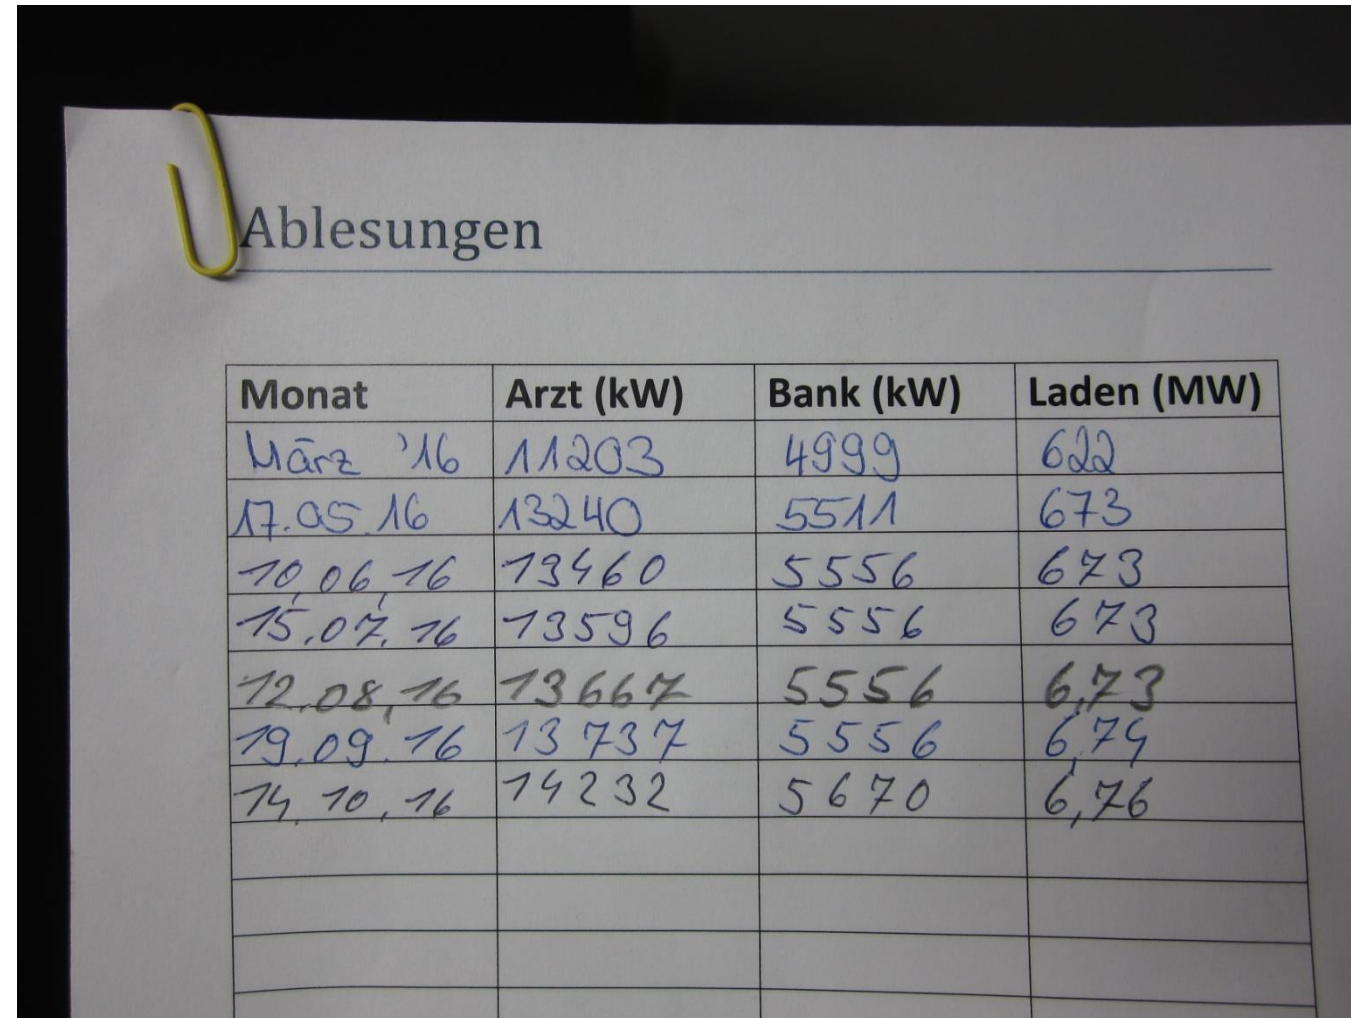 Ablesungen
Monat Arzt (kW) Bank (kW) Laden (MW)
März '16 11203 4999 622
17.05.16 13240 5511 673
10,06,16 13460 5556 673
15.07.16 13596 5556 673
12.08,16 13667 5556 6,73
19.09.16 13737 5556 6,74
14.10,16 14232 5670 6,76